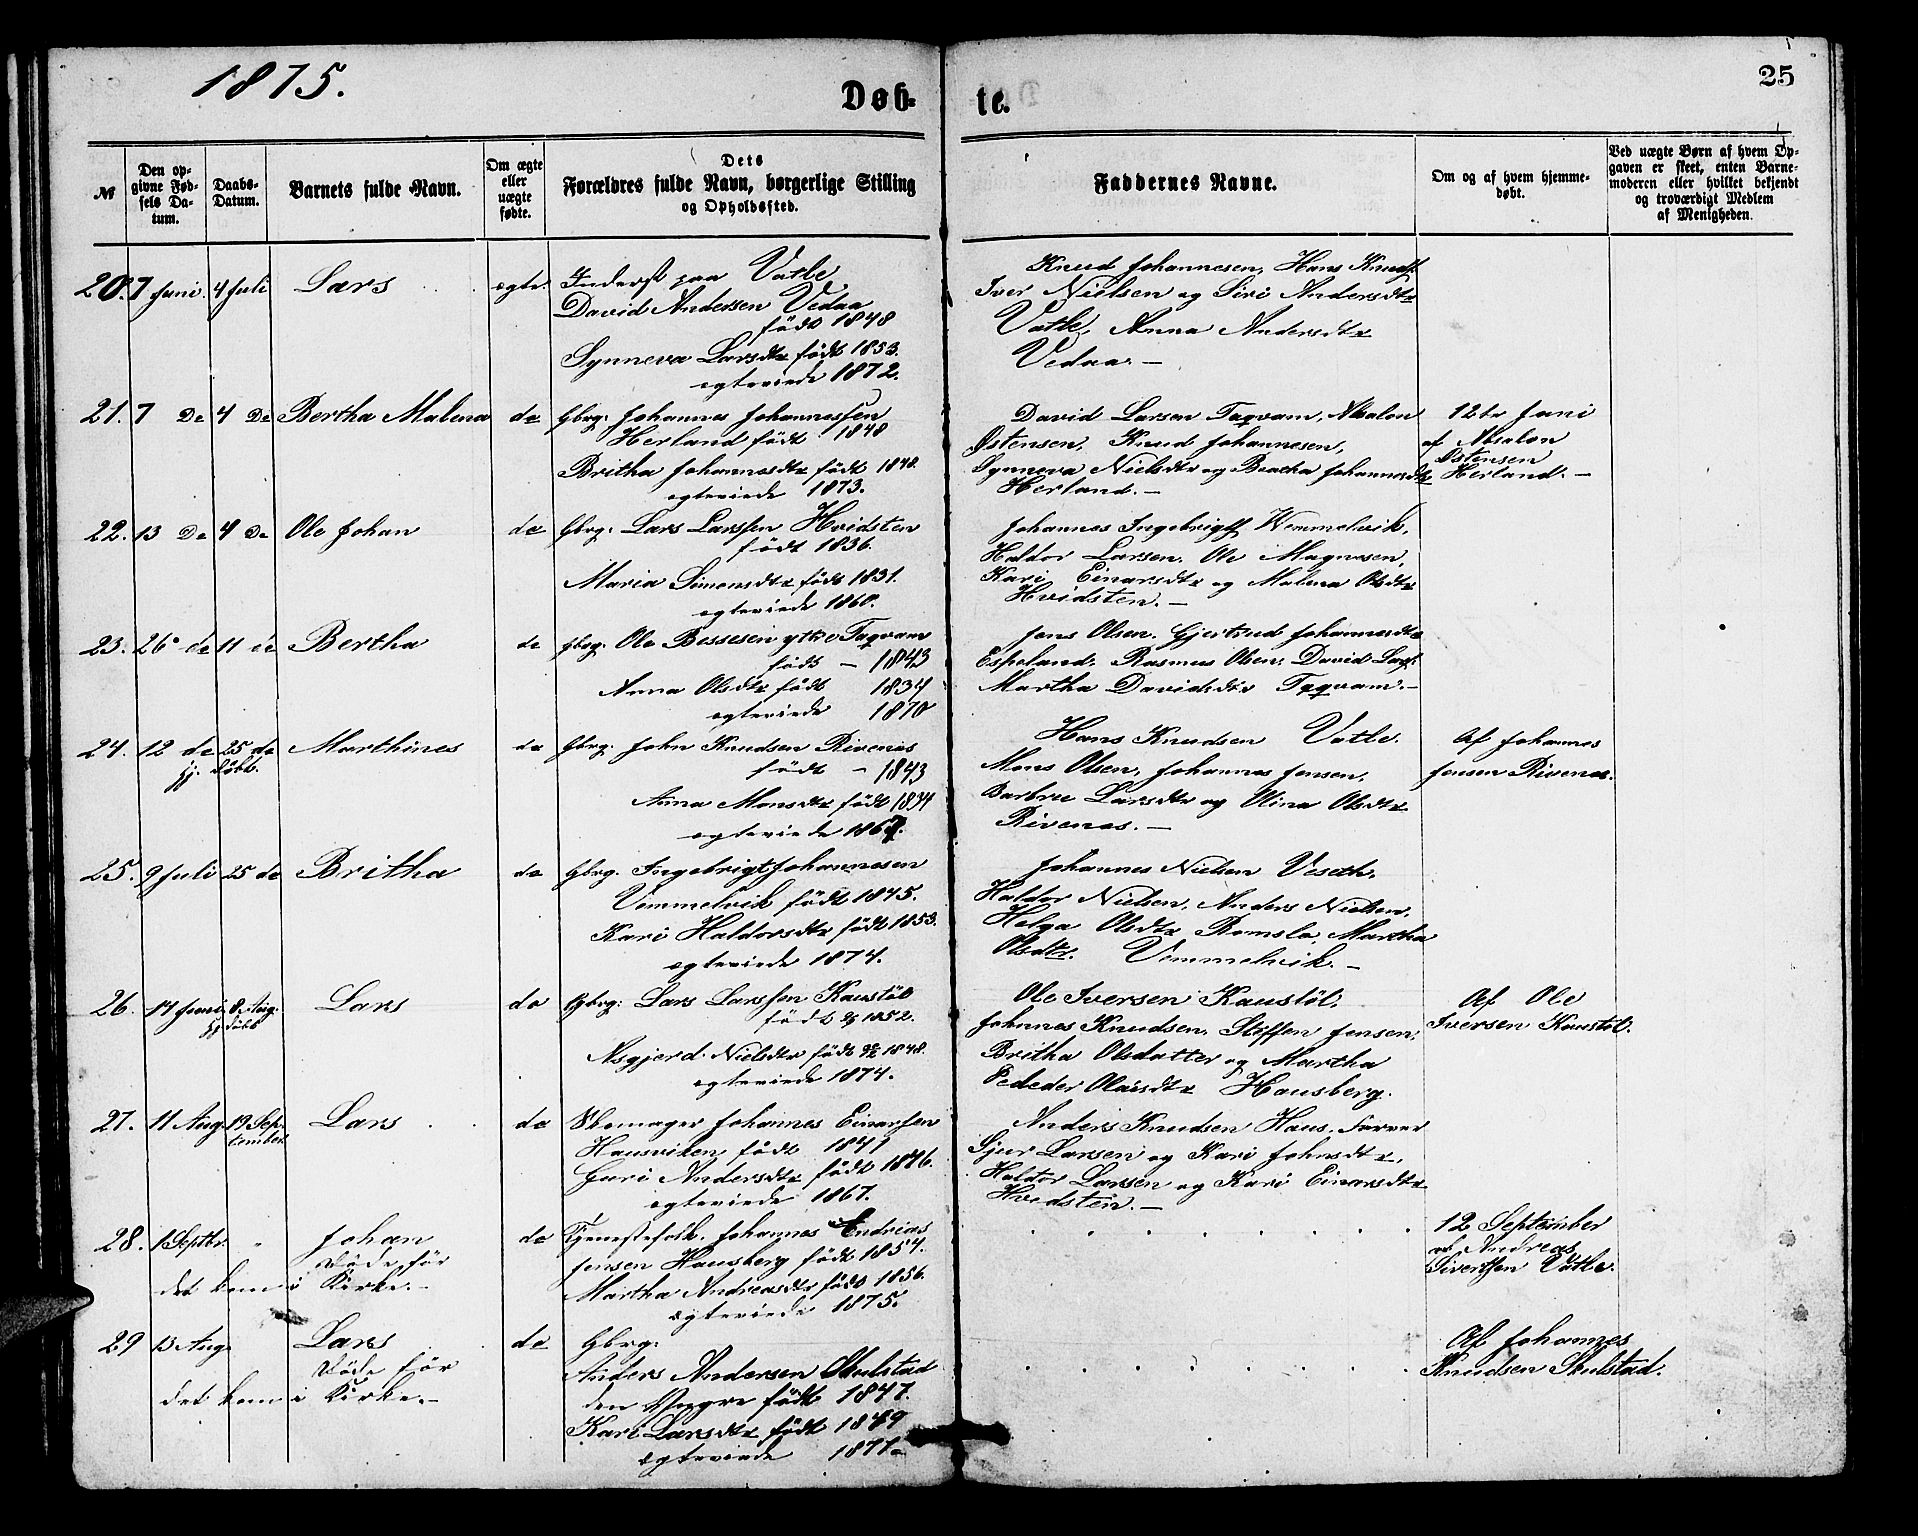 1875.
Døb-
te.
25
№
Den op-
givne Fød-
sels Da-
tum.
Daabs-
Datum.
Barnets fulde Navn.
Om ægte
eller
uægte
fødte.
Dets
Forældres fulde Navn, borgerlige Stilling
og Opholdssted.
Faddernes Navne.
Om og af hvem hjemme-
døbt.
Ved uægte Børn af hvem Op-
gaven er skeet, enten Barne-
moderen eller hvilket bekjendt
og troværdigt Medlem
af Menigheden.
20. 7 Juni. 4 Juli Lars ægte. Inderst paa Vatle
David Andersen Vedaa
født 1848
Synneva Larsdtr født 1853.
ægteviede 1872.
Knud Johannesen, Hans Knuds.
Iver Nielsen og Siri Andersdtr
Vatle, Anna Andersdtr
Vedaa. —
21. 7 Do 4 Do Bertha Malena do Gbrg: Johannes Johannessen
Herland født 1848
Britha Johannesdtr født 1848.
ægteviede 1873.
David Larsen Taqvam, Absalon
Østensen, Knud Johannesen,
Synneva Nielsdtr og Beatha Johannesdtr
Herland. —
12te Juni
af Absalon
Østensen
Herland. —
22. 13 Do 4 Do Ole Johan do Gbrg: Lars Larssen Hvidsten
født 1836.
Maria Simonsdtr født 1831.
ægteviede 1860.
Johannes Ingebrigts. Wemmelvik,
Haldor Larsen, Ole Magnesen,
Kari Einarsdtr og Malena Olsdtr
Hvidsten. —
23. 26 do 11 do Bertha do Gbrg: Ole Bessesen ytre Taqvam
født — 1843
Anna Olsdtr født 1834
ægteviede 1870
Jons Olsen, Gjertrud Johannesdtr
Espeland, Rasmus Olsen, David Lars.
Martha Davidsdtr Taqvam. —
24. 12 do 25 do Marthines do Gbrg: John Knudsen Rivenes
hj. døbt.
født — 1843
Anna Monsdtr født 1844
ægteviede 1867.
Hans Knudsen Vatle.
Mons Olsen, Johannes Jensen,
Barbru Larsdtr og Olina Olsdtr
Rivenes. —
Af Johannes
Jensen Rivenes.
25. 9 Juli 25 do Britha do Gbrg. Ingebrigt Johannesen
Vemmelvik født 1845.
Kari Haldorsdtr født 1853.
ægteviede 1874.
Johannes Nielsen Veseth,
Haldor Nielsen, Anders Nielsen,
Helga Olsdtr Romslo, Martha
Olsdtr. Vemmelvik. —
26. 17 Juni 8 Aug. Lars do Gbrg: Lars Larssen Kaustøl
hj døbt
født 1852.
Asgjerd Nielsdtr født 1848.
ægteviede 1874.
Ole Iversen Kaustøl,
Johnes Knudsen, Steffen Jensen,
Britha Olsdatter og Martha
Pededer Olaisdtr Hausberg.
Af Ole
Iversen Kaustøl.
27. 11 Aug 19 Sep- Lars do Skomager Johannes Einarsen
tember
Hausviken, født 1841
Guri Andersdtr født 1846.
ægteviede 1867.
Anders Knudsen Haus, Farver
Sjur Larsen og Kari Johnsdtr,
Haldor Larsen og Kari Einarsdtr
Hvidsten. —
28. 1 Septbr. " Johan do Tjenestefolk. Johannes Endrias
Døde før
det kom i Kirke. —
Jensen Hausberg født 1854.
Martha Andreasdtr født 1856.
ægteviede 1875.
12 September
af Andreas
Sivertsen Vatle.
29 13 Aug Lars do Gbrg:
Døde før
det kom i Kirke. —
Anders Andersen Skulstad
den Yngre født 1847.
Kari Larsdtr født 1849
ægteviede 1871.
Af Johannes
Knudsen Skulstad.